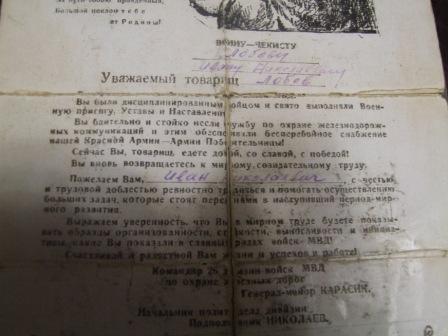 Большой поклон тебе
от Родины!
ВОИНУ—ЧЕКИСТУ
Лобову
Ивану
Уважаемый товарищ Лобов
Вы были дисциплинированным бойцом и свято выполняли Воен-
ную присягу, Уставы и Наставления
Вы бдительно и стойко несли службу по охране железнодорож-
ных коммуникаций и этим обеспечивали бесперебойное снабжение
нашей Красной Армии—Армии Победительницы!
Сейчас Вы, товарищ, едете домой, со славой, с победой!
Вы вновь возвращаетесь к мирному, созидательному труду.
Пожелаем Вам, Иван Николаевич с честью
и трудовой доблестью ревностно трудиться и помогать осуществлению
больших задач, которые стоят перед нами в наступивший период мир-
ного развития.
Выражаем уверенность, что Вы в мирном труде будете показы-
вать образцы организованности, выносливости и инициа-
тивы, какие Вы показали в славных рядах войск МВД!
Счастливой и радостной Вам жизни и успехов в работе!
Командир 26 дивизии войск МВД
по охране железных дорог
Генерал-майор КАРАСИК.
Начальник политотдела дивизии
Подполковник НИКОЛАЕВ.